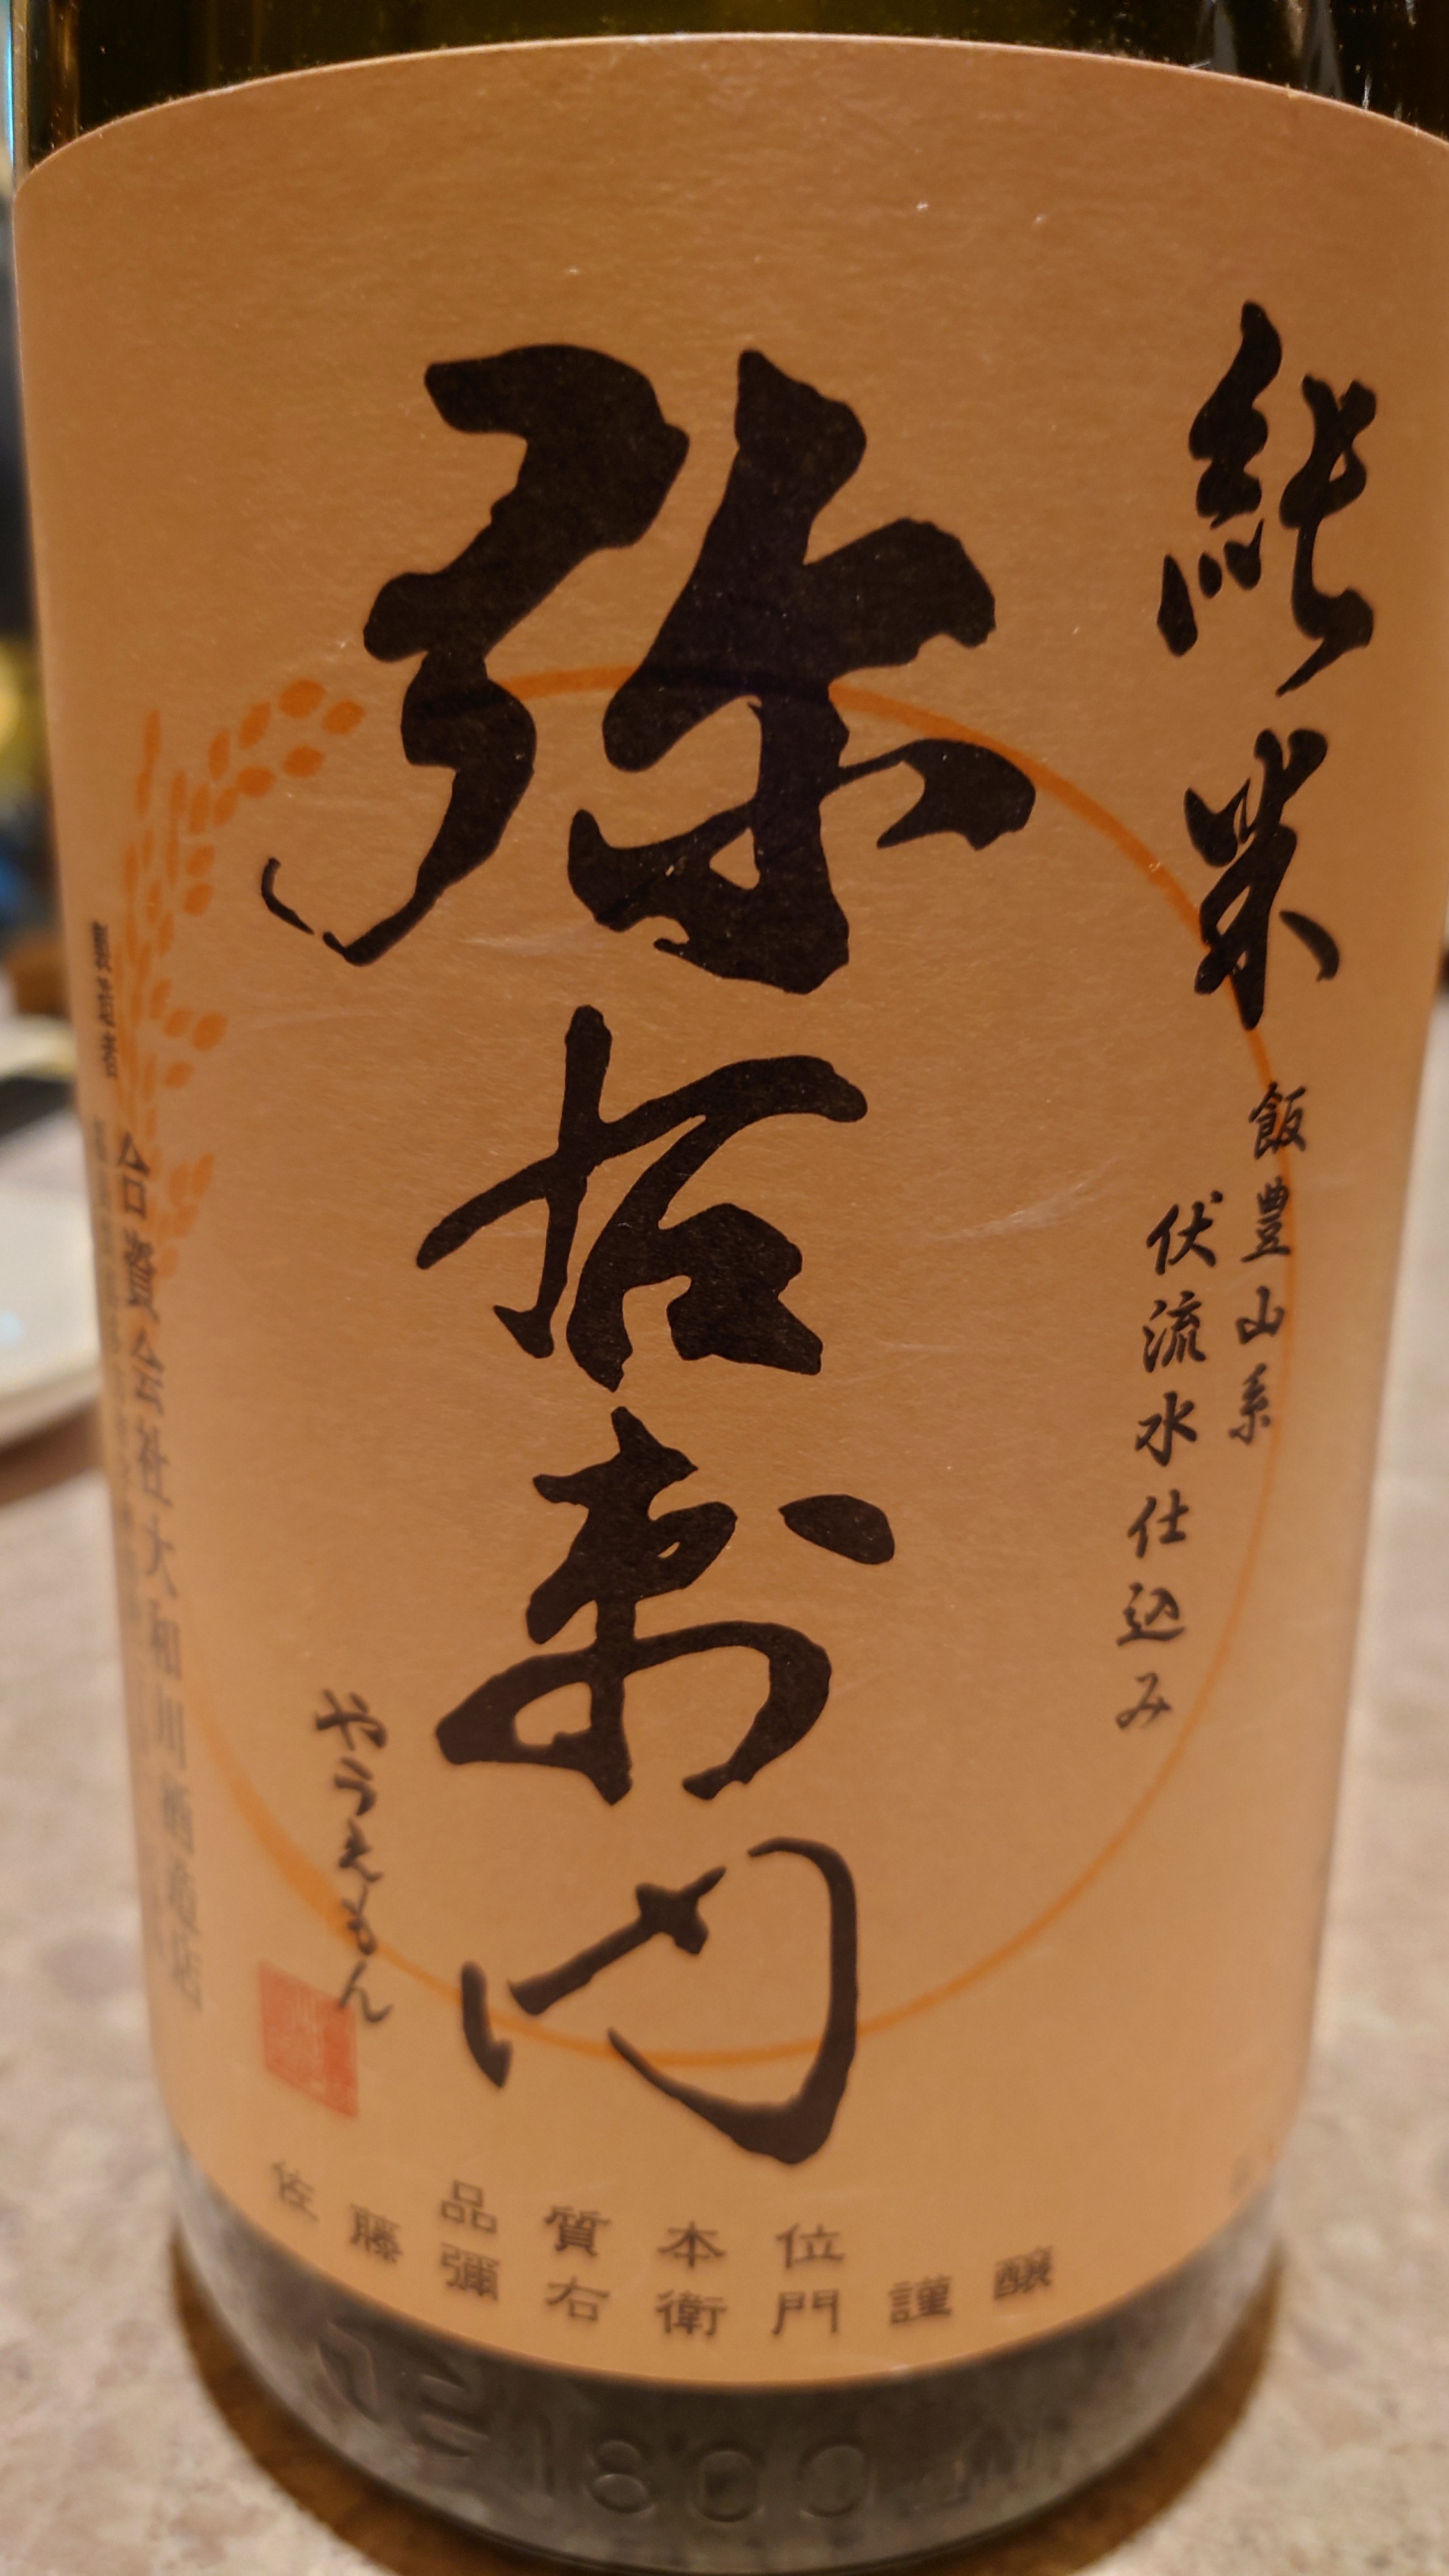 純米
飯豊山系
伏流水仕込み
弥右衛門
やうえもん
製造者
合資会社大和川酒造店
品質本位
佐藤彌右衛門謹醸
1800